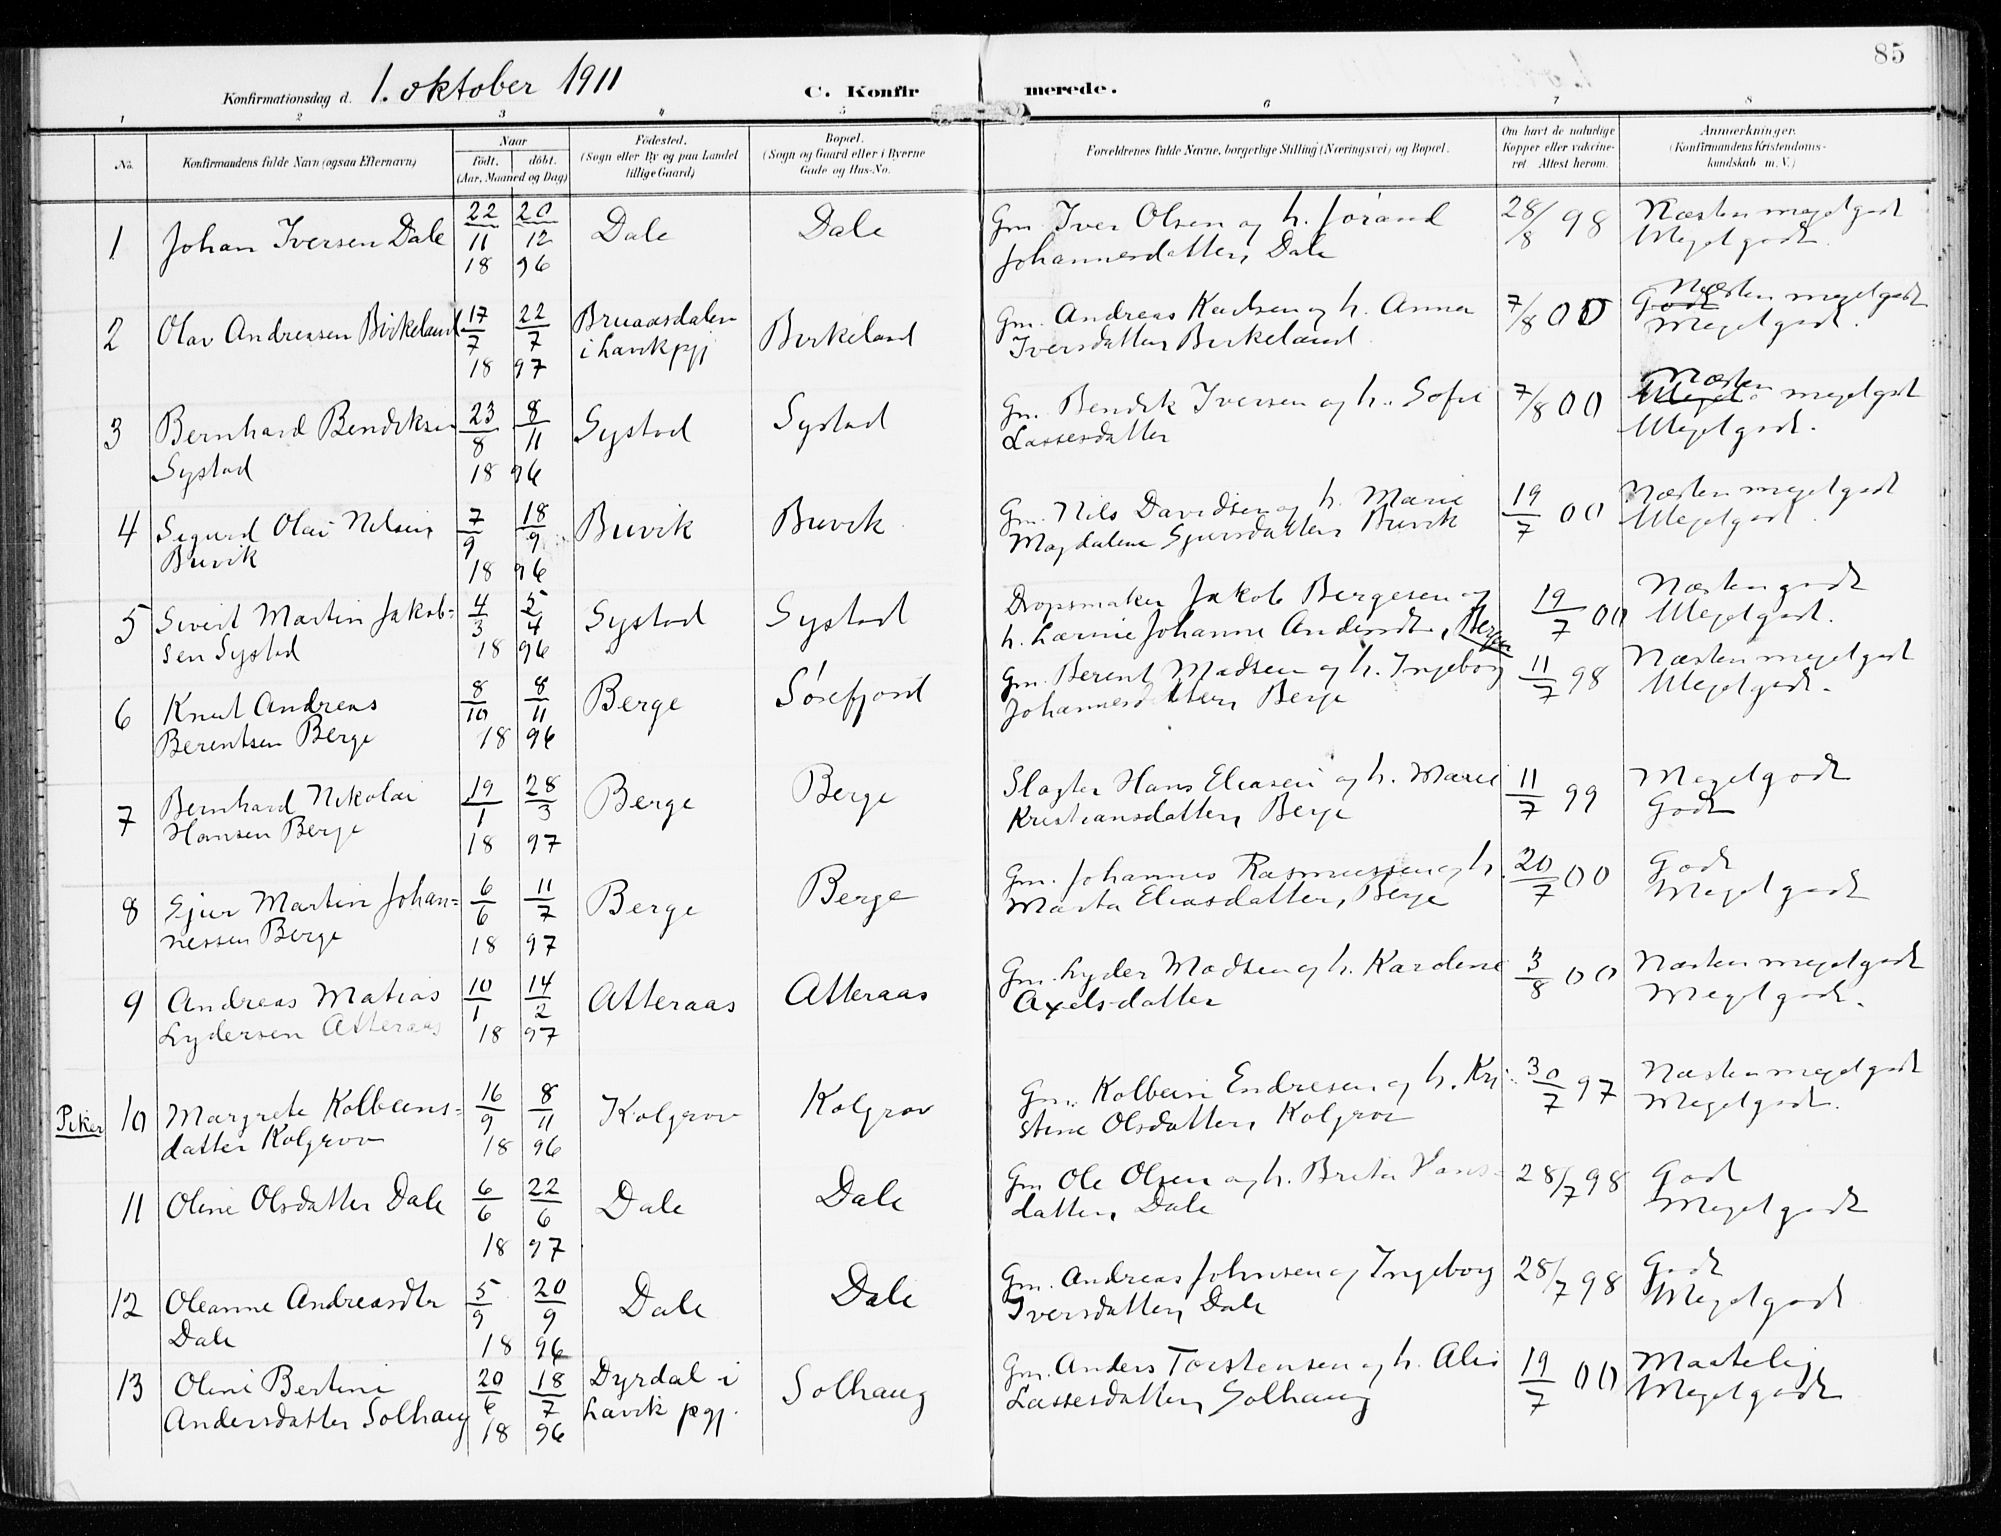 85
Konfirmationsdag d. 1. oktober 1911 C. Konfirmerede.
1 2 3 4 5 6 7 8
No.
Konfirmandens fulde Navn (ogsaa Efternavn)
Naar
födt. döbt.
(Aar, Maaned og Dag)
Födested.
(Sogn eller By og paa Landet
tillige Gaard)
Bopæl.
(Sogn og Gaard eller i Byerne
Gade og Hus-No.
Forældrenes fulde Navne, borgerlige Stilling (Næringsvei) og Bopæl.
Om havt de naturlige
Kopper eller vakcine-
ret Attest herom.
Anmærkninger.
(Konfirmandens Kristendoms-
kundskab m. V.)
1 Johan Iversen Dale 22/11 20/12 1896 Dale Dale
Gm. Iver Olsen og h. Jorand
Johannesdatter, Dale
28/8 98
Næsten meget godt
Meget godt.
2 Olav Andreasen Birkeland 17/7 22/7 1897
Bruaasdalen
i Lavik pgj
Birkeland
Gm. Andreas Karlsen og h. Anna
Iversdatter Birkeland.
7/8 00
Godt Næsten meget godt
Meget godt.
3 Bernhard Bendiksen
Systad
23/8 8/11 1896 Systad Systad
Gm. Bendik Iversen og h. Sofie
Lassesdatter
7/8 00
Meget Næsten meget godt
Meget godt.
4 Sigurd Olai Nilsen
Buvik
7/9 18/9 1896 Buvik Buvik
Gm. Nils Davidsen og h. Marie
Magdalene Sjursdatter, Buvik
19/7 00
Næsten meget godt
Meget godt.
5 Sivert Martin Jakob-
sen Systad
4/3 5/4 1896 Systad Systad
Dropsmaker Jakob Bergesen og
h. Johanne Andersdt, Bergen
19/7 00
Næsten godt
Meget godt.
6 Knut Andreas
Berentsen Berge
8/10 8/11 1896 Berge Sörefjord
Gm. Berent Madsen og h. Ingeborg
Johannesdatter, Berge
11/7 98
Næsten meget godt
Meget godt.
7 Bernhard Nikolai
Hansen Berge
19/1 28/3 1897 Berge Berge
Slagter Hans Eliasen og h. Marie
Kristiansdatter, Berge
11/7 99
Meget godt
Godt
8 Sjur Martin Johan-
nessen Berge
6/6 11/7 1897 Berge Berge
Gm. Johannes Rasmussen og h.
Marta Eliasdatter, Berge
20/7 00
Godt
Meget godt
9 Andreas Matias
Lydersen Atteraas
10/1 14/2 1897 Atteraas Atteraas
Gm. Lyder Madsen og h. Karoline
Axelsdatter
3/8 00
Næsten meget godt
Meget godt.
Piker
10 Margrete Kolbeins-
datter Kolgrov
16/9 8/11 1896 Kolgrov Kolgrov
Gm. Kolbein Endresen og h. Kri-
stine Olsdatter, Kolgrov
30/7 97
Næsten meget godt
Meget godt.
11 Oline Olsdatter Dale 6/6 22/6 1897 Dale Dale
Gm Ole Olsen og h. Brita Hans-
datter, Dale
28/7 98
Godt
Meget godt
12 Oleanne Andreasdtr
Dale
5/9 20/9 1896 Dale Dale
Gm. Andreas Johnsen og Ingeborg
Iversdatter, Dale
28/7 98
Godt
Meget godt
13 Oline Bertine
Andersdatter Solhaug
20/6 18/7 1896
Dyrdal i
Lavik pgj.
Solhaug
Gm. Anders Torstensen og h. Alis
Lassesdatter, Solhaug
19/7 00
Maatelig,
Meget godt